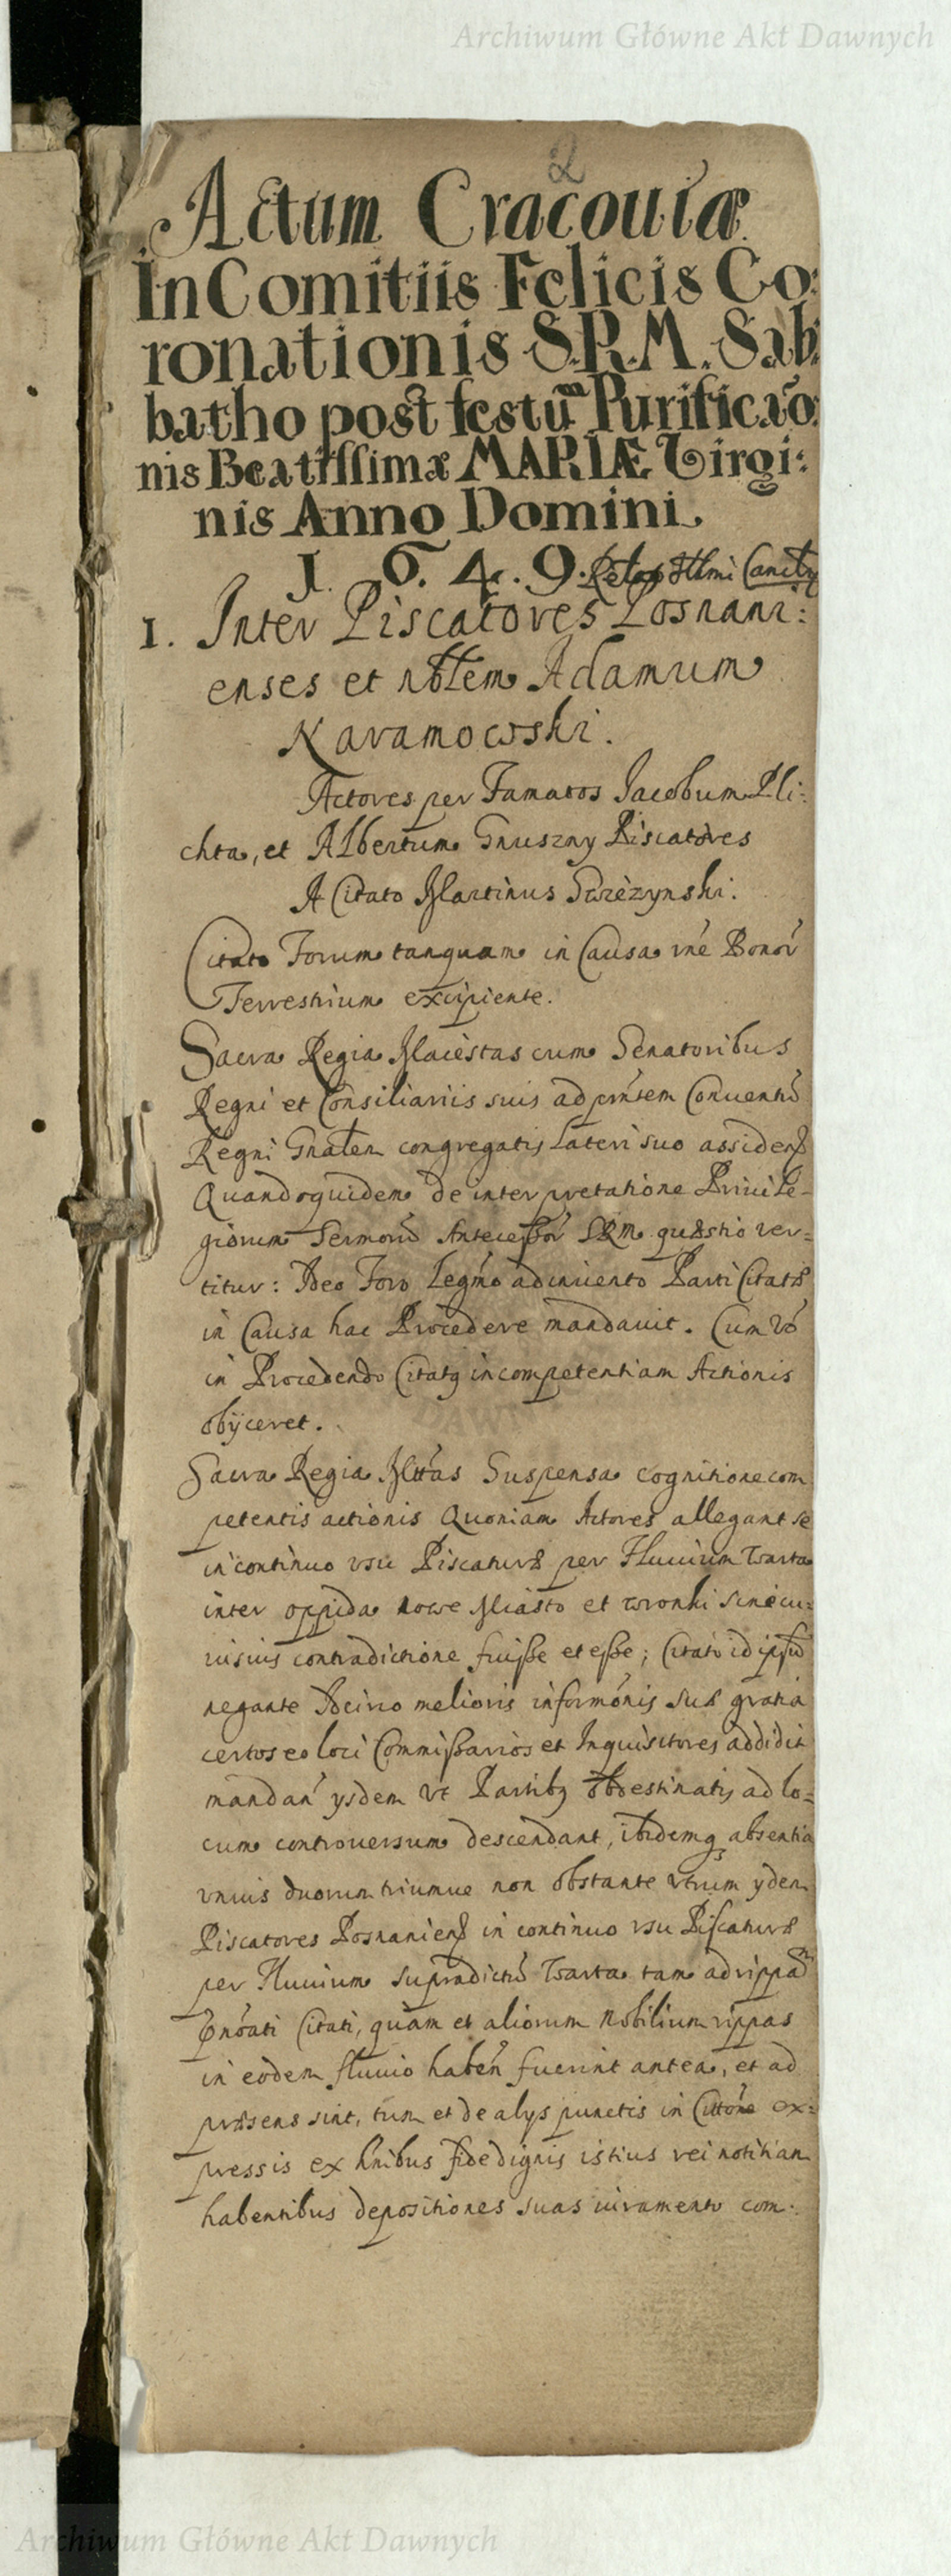 Archiwum Główne Akt Dawnych
2
Actum Cracouiæ
In Comitiis Felicis Co:
ronationis S.R.M. Sab:
batho post festũ Purificaõ:
nis Beatissimæ MARIÆ Virgi:
nis Anno Domini
1. 6. 4. 9.
1. Inter Piscatores Posnani:
enses et nbłem Adamum
Karamowski.
Actores per Famatos Jacobum Pli:
chta, et Albertum Gnuszny Piscatores
A Citato Martinus
Citato Forum tanquam in Causa rñe Bonoř
Terrestrium excipiente.
Sacra Regia Maiestas cum Senatoribus
Regni et Consiliariis suis ad pñtem Conventũ
Regni Gñałem congregatis Lateri suo assideñ
Quandoquidem de interpretatione Privile-
giorum Sermorũ Antecessor SRM. quæstio ver=
titur: Ideo Foro Legmo adinvento Parti Citatæ
in Causa hac Procedere mandauit. Cum vo
in Procedendo Citatq incompetentiam Actionis
obÿceret.
Sacra Regia Mttas Suspensa cognitione com
petentis actionis Quoniam Actores allegant se
in continuo vsu Piscaturæ per Fluuium Warta
inter oppida nowe Miasto et wronki sine cu:
iusuis contradictione fuisse et esse; Citato id ipsũ
negante Idcirco melioris informõnis suæ gratia
certos eo loci Commissarios et Inquisitores addidit
mandañ ysdem vt Partibq obdestinatis ad lo=
cum controuersum descendant, ibidemq absentia
vnius duorum triumue non obstante vtrum ydem
Piscatores Posnanienß in continuo vsu Piscaturæ
per Fluuium supradictũ Warta tam ad rippam
Citati, quam et aliorum Nobilium rippas
in eodem fluuio habeñ fuerint antea, et ad
præsens sint, tum et de alys punctis in Cittõne ex=
pressis ex hñibus fide dignis istius rei notitiam
habentibus depositiones suas iuramento com:
Archiwum Główne Akt Dawnych